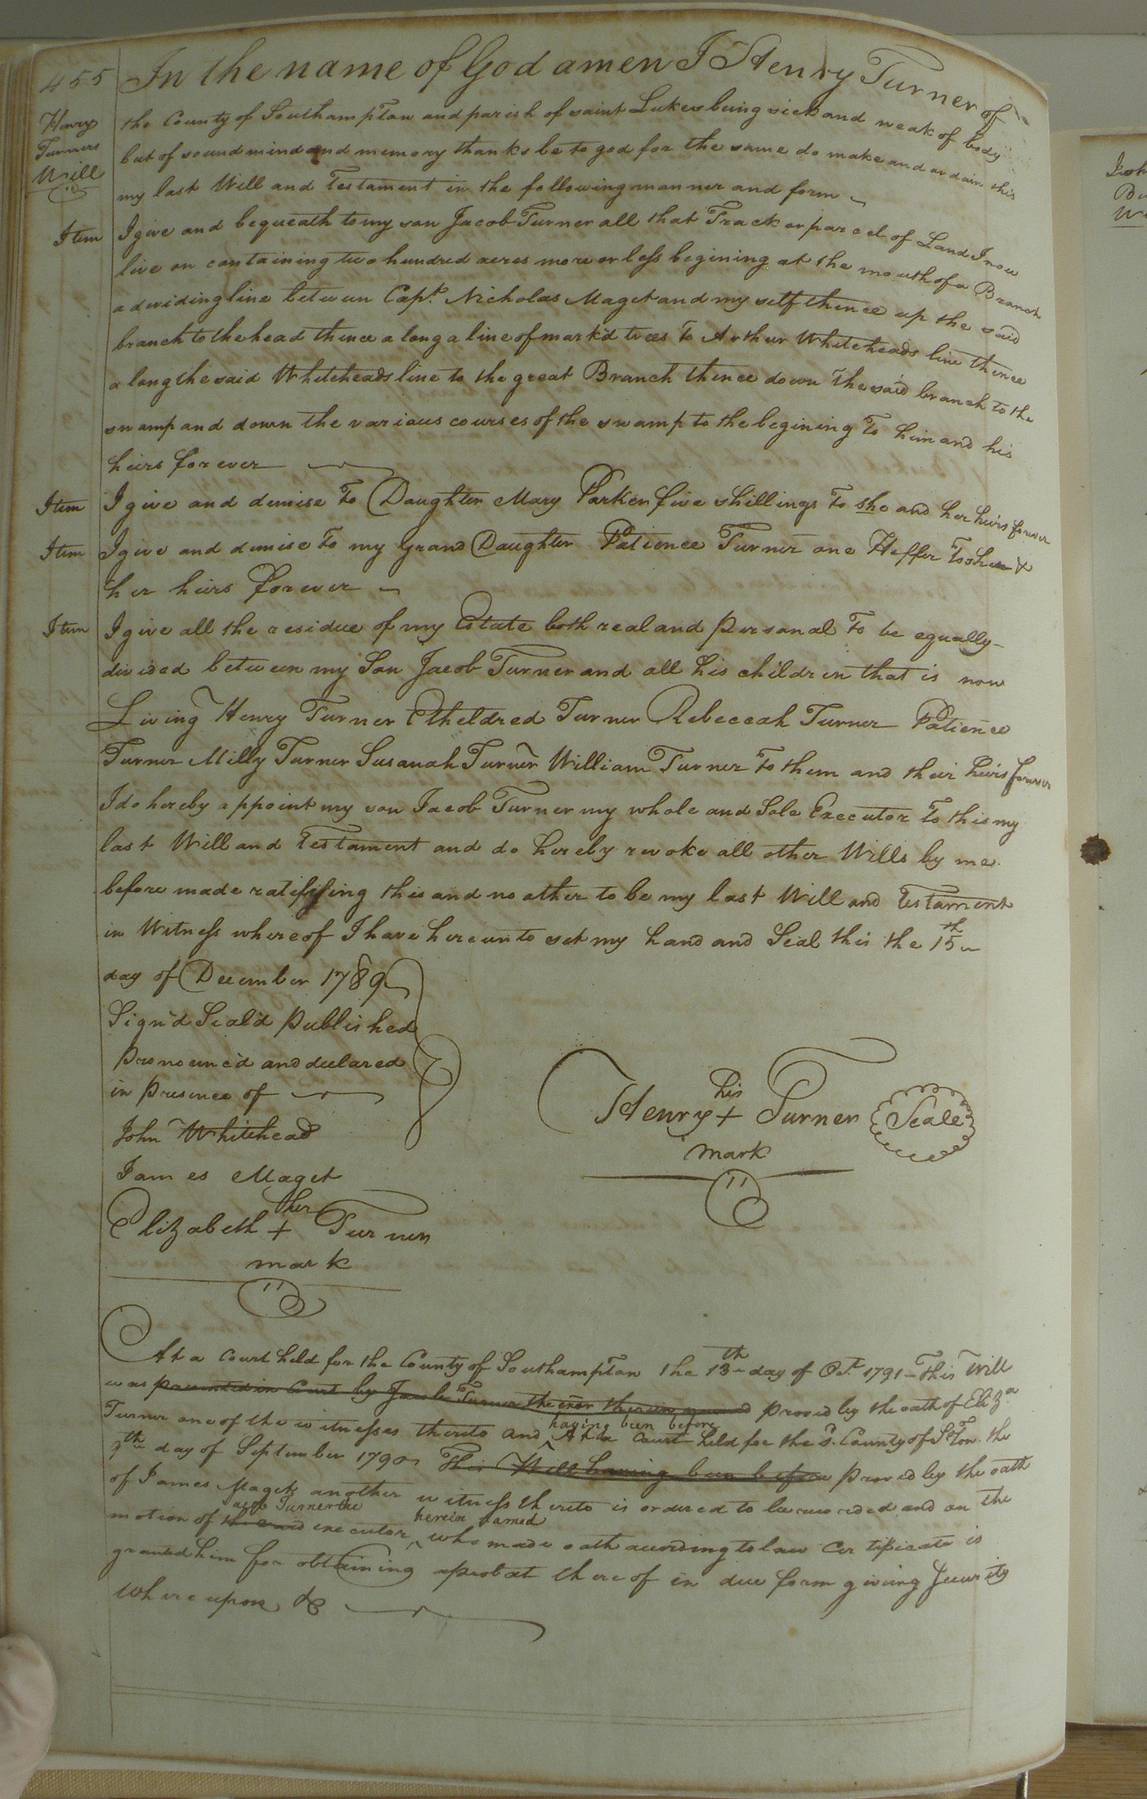 455
Henry
Turners
Will
In the name of God amen I Henry Turner of
the County of Southampton and parish of saint Lukes being sick and weak of body
but of sound mind and memory thanks be to god for the same do make and ordain this
my last Will and Testament in the following manner and form
Item I give and bequeath to my son Jacob Turner all that Track or parcel of Land I now
live on containing two hundred acres more or less begining at the mouth of a Branch
a deviding line between Capt. Nicholas Maget and my self thence up the said
branch to the head thence a long a line of markd trees To Arthur Whiteheads line thence
a long the said Whiteheads line to the great Branch thence down the said branch to the
swamp and down the various courses of the swamp to the begining To him and his
heirs for ever
Item I give and demise To Daughter Mary Parker five shillings To she and her heirs forever
Item I give and demise To my Grand Daughter Patience Turner one Heffer To her &
her heirs forever
Item I give all the residue of my Estate both real and personal To be equally
divided between my Son Jacob Turner and all his children that is now
Living Henry Turner Etheldred Turner Rebeccah Turner Patience
Turner Milly Turner Susanah Turner William Turner To them and their heirs forever
I do hereby appoint my son Jacob Turner my whole and Sole Executor To this my
last Will and Testament and do hereby revoke all other Wills by me
before made ratifying this and no other to be my last Will and Testament
in Witness whereof I have hereunto set my hand and Seal this the 15th
day of December 1789
Sign'd Seal'd Published
Pronounc'd and declared
in Presence of
John Whitehead
James Maget
her
Elizabeth + Turner
mark
his
Henry + Turner Seale
mark
At a Court held for the County of Southampton the 13th day of Oct. 1791 This Will
was presented in Court by Jacob Turner the exor. therein named proved by the oath of Eliza
Turner one of the witnesses thereto and having been before At a Court held for the sd. County of S.Ton. the
9th day of September 1790 This Will having been before proved by the oath
of James Maget another witness thereto is ordered to be recorded and on the
motion of Turner the executor herein named who made oath according to law certificate is
granted him for obtaining a probat thereof in due form giving Security
Whereupon &c